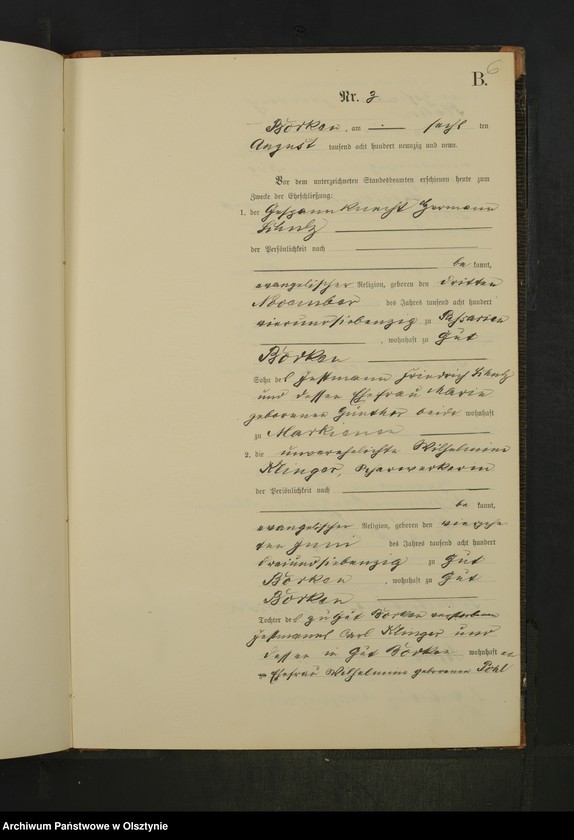 B.
6
Nr. 3
Borken, am sechsten
August tausend acht hundert neunzig und neun.
Vor dem unterzeichneten Standesbeamten erschienen heute zum
Zwecke der Eheschließung:
1. der Gespannknecht Hermann
Schulz
der Persönlichkeit nach
be kannt,
evangelischer Religion, geboren den dritten
November des Jahres tausend acht hundert
vierundsiebenzig zu Passarien
, wohnhaft zu Gut
Borken
Sohn des Instmann Friedrich Schulz
und dessen Ehefrau Marie
geborenen Günther beide wohnhaft
zu Markienen
2. die unverehelichte Wilhelmine
Klinger, Scharwerkerin
der Persönlichkeit nach
be kannt,
evangelischer Religion, geboren den vierzehn
ten Juni des Jahres tausend acht hundert
dreiundsiebenzig zu Gut
Borken , wohnhaft zu Gut
Borken
Tochter des zu Gut Borken verstorbenen
Instmannes Carl Klinger und
dessen in Gut Borken wohnhaften
Ehefrau Wilhelmine geborenen Pohl
Archiwum Państwowe w Olsztynie